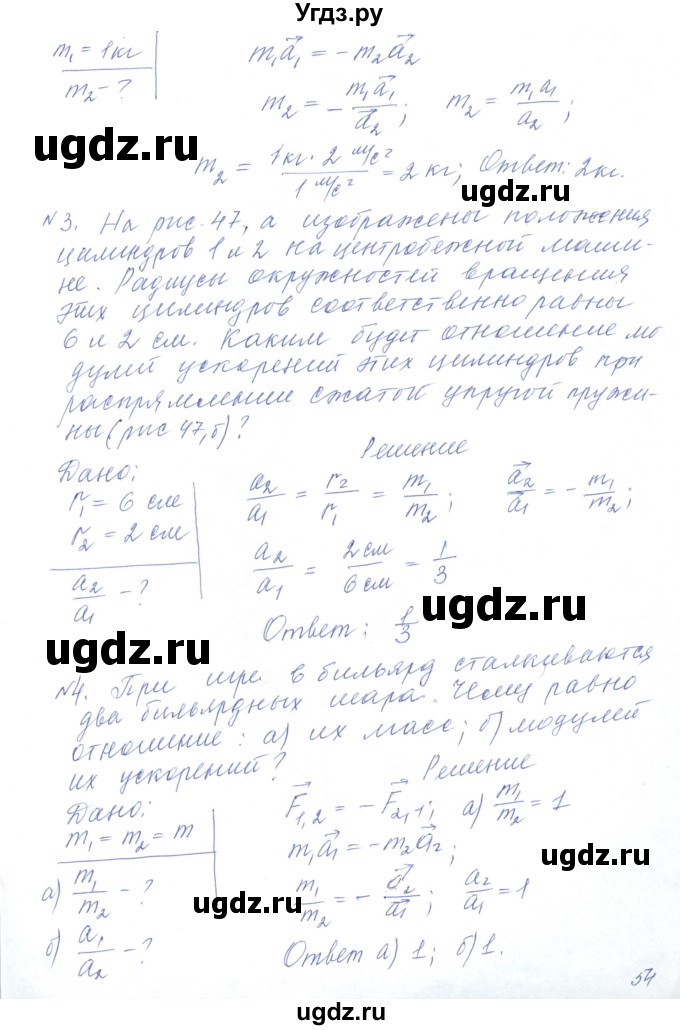 Угдз.ру
m₁ = 1кг
m₂ - ?
m₁a⃗₁ = - m₂a⃗₂
m₂ = - m₁a⃗₁/a⃗₂; m₂ = m₁a₁/a₂;
ugdz.ru ugdz.ru
m₂ = 1кг · 2 м/с²/1 м/с² = 2 кг; Ответ: 2кг.
№3. На рис. 47, а изображены положения
цилиндров 1 и 2 на центробежной маши-
не. Радиусы окружностей вращения
этих цилиндров соответственно равны
6 и 2 см. Каким будет отношение мо
дулей ускорений этих цилиндров при
распрямлении сжатой упругой пружи-
ны (рис 47,б)?
Дано:
r₁ = 6 см
r₂ = 2 см
a₂/a₁ - ?
Решение
a₂/a₁ = r₂/r₁ = m₁/m₂; a⃗₂/a⃗₁ = - m₁/m₂;
a₂/a₁ = 2 см/6 см = 1/3
ugdz.ru
Ответ: 1/3
ugdz.ru
№4. При игре в бильярд сталкиваются
два бильярдных шара. Чему равно
отношение: а) их масс; б) модулей
их ускорений?
Дано:
m₁ = m₂ = m
а) m₁/m₂ - ?
б) a₁/a₂ - ?
Решение
F⃗₁,₂ = - F⃗₂,₁; а) m₁/m₂ = 1
m₁a⃗₁ = - m₂a⃗₂;
ugdz.ru
m₁/m₂ = - a⃗₂/a⃗₁; a₂/a₁ = 1
ugdz.ru
Ответ а) 1; б) 1.
54
ugdz.ru